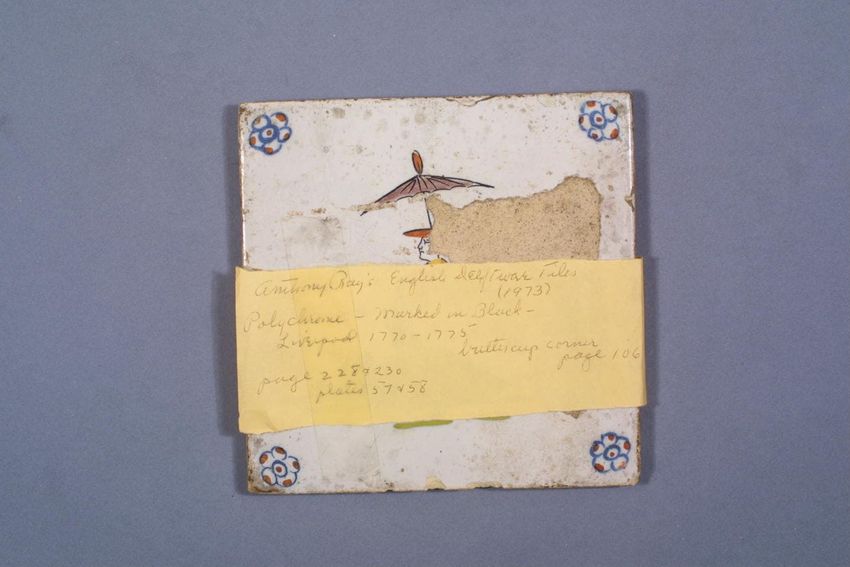 Anthony Ray's English Delftware Tiles
(1973)
Polychrome - Marked in Black -
Liverpool 1770-1775
buttercup corner
page 106
page 228 & 230
plates 57 & 58